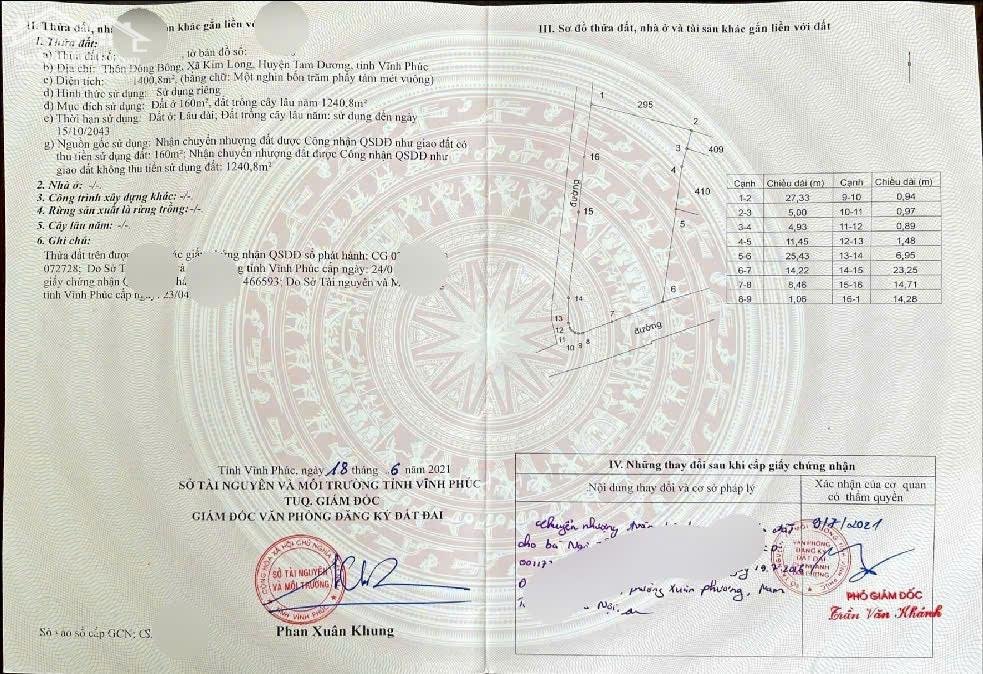 II. Thửa đất, nhà khác gắn liền với
1. Thửa đất:
a) Thửa đất số: tờ bản đồ số:
b) Địa chỉ: Thôn Đồng Bông, Xã Kim Long, Huyện Tam Dương, tỉnh Vĩnh Phúc
c) Diện tích: 1400,8m², (bằng chữ: Một nghìn bốn trăm phẩy tám mét vuông)
d) Hình thức sử dụng: Sử dụng riêng
đ) Mục đích sử dụng: Đất ở 160m², đất trồng cây lâu năm 1240,8m²
e) Thời hạn sử dụng: Đất ở: Lâu dài; Đất trồng cây lâu năm: sử dụng đến ngày
15/10/2043
g) Nguồn gốc sử dụng: Nhận chuyển nhượng đất được Công nhận QSDĐ như giao đất có
thu tiền sử dụng đất: 160m²; Nhận chuyển nhượng đất được Công nhận QSDĐ như
giao đất không thu tiền sử dụng đất: 1240,8m²
2. Nhà ở: -/-.
3. Công trình xây dựng khác: -/-.
4. Rừng sản xuất là rừng trồng:-/-.
5. Cây lâu năm: -/-.
6. Ghi chú:
Thửa đất trên được giấy chứng nhận QSDĐ số phát hành: CG
072728; Do Sở tỉnh Vĩnh Phúc cấp ngày: 24/0
giấy chứng nhận 466593; Do Sở Tài nguyên và
tỉnh Vĩnh Phúc cấp ngày: 23/04
Tỉnh Vĩnh Phúc, ngày 18 tháng 6 năm 2021
SỞ TÀI NGUYÊN VÀ MÔI TRƯỜNG TỈNH VĨNH PHÚC
TUQ. GIÁM ĐỐC
GIÁM ĐỐC VĂN PHÒNG ĐĂNG KÝ ĐẤT ĐAI
CỘNG HÒA XÃ HỘI CHỦ NGHĨA
SỞ TÀI NGUYÊN
VÀ MÔI TRƯỜNG
TỈNH VĨNH PHÚC
Phan Xuân Khung
Số vào sổ cấp GCN: CS.
III. Sơ đồ thửa đất, nhà ở và tài sản khác gắn liền với đất
1
295
2
3
409
4
410
16
đường
15
5
14
6
13
7
12
đường
11
10 9 8
Cạnh Chiều dài (m) Cạnh Chiều dài (m)
1-2 27,33 9-10 0,94
2-3 5,00 10-11 0,97
3-4 4,93 11-12 0,89
4-5 11,45 12-13 1,48
5-6 25,43 13-14 6,95
6-7 14,22 14-15 23,25
7-8 8,46 15-16 14,71
8-9 1,06 16-1 14,28
IV. Những thay đổi sau khi cấp giấy chứng nhận
Nội dung thay đổi và cơ sở pháp lý
Xác nhận của cơ quan
có thẩm quyền
Chuyển nhượng đất
cho bà
00117
phường Xuân Phương, Nam
Nội
9/7/2021
VĂN PHÒNG
ĐĂNG KÝ
ĐẤT ĐAI
PHÓ GIÁM ĐỐC
Trần Văn Khánh